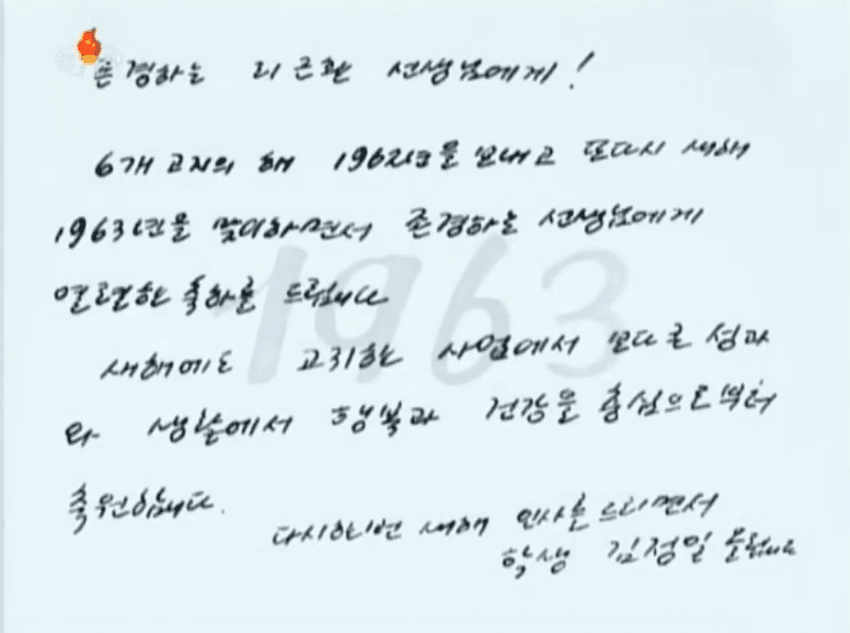 존경하는 리근환 선생님에게!
6개 고지의 해 1962년을 보내고 또다시 새해
1963년을 맞이하면서 존경하는 선생님에게
열렬한 축하를 드립니다
새해에도 고귀한 사업에서 보다 큰 성과
와 생활에서 행복과 건강을 충심으로부터
축원합니다.
다시한번 새해 인사를 드리면서
학생 김정일 올립니다
1963